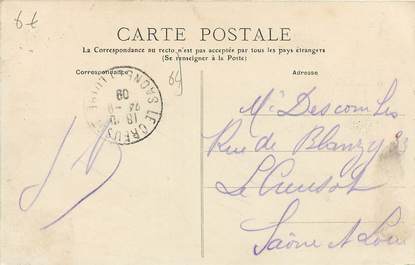 6€
CARTE POSTALE
La Correspondance au recto n'est pas acceptée par tous les pays étrangers
(Se renseigner à la Poste)
Correspondance
Adresse
Mr Descombes
Rue de Blanzy
Le Creusot
Saône et Loire
LE CREUSOT
09